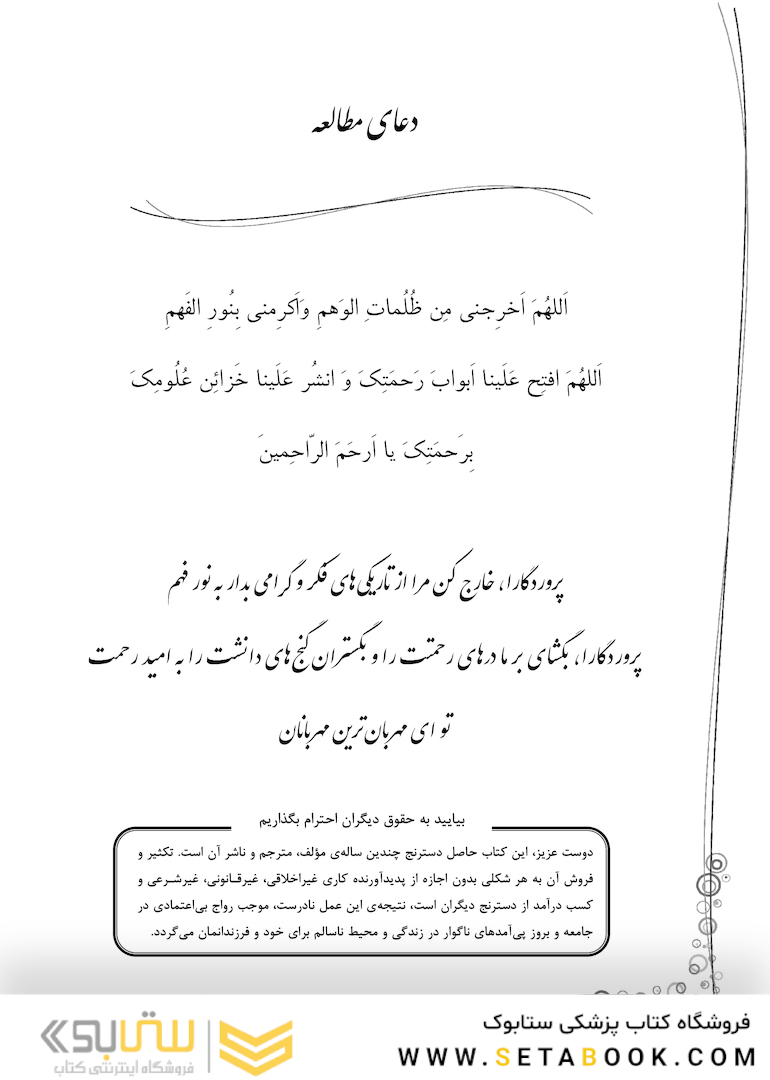 دعای مطالعه
اَللهُمَ اَخرِجنی مِن ظُلُماتِ الوَهمِ وَاَکرِمنی بِنُورِ الفَهمِ
اَللهُمَ افتِح عَلَینا اَبوابَ رَحمَتِکَ وَ انشُر عَلَینا خَزائِن عُلُومِکَ
بِرَحمَتِکَ یا اَرحَمَ الرّاحِمینَ
پروردگارا، خارج کن مرا از تاریکی‌های فکر و گرامی بدار به نور فهم
پروردگارا، بگشای بر ما درهای رحمتت را و بگستران گنج‌های دانشت را به امید رحمت
تو ای مهربان‌ترین مهربانان
بیایید به حقوق دیگران احترام بگذاریم
دوست عزیز، این کتاب حاصل دسترنج چندین ساله‌ی مؤلف، مترجم و ناشر آن است. تکثیر و
فروش آن به هر شکلی بدون اجازه از پدیدآورنده کاری غیراخلاقی، غیرقانونی، غیرشرعی و
کسب درآمد از دسترنج دیگران است، نتیجه‌ی این عمل نادرست، موجب رواج بی‌اعتمادی در
جامعه و بروز پی‌آمدهای ناگوار در زندگی و محیط ناسالم برای خود و فرزندانمان می‌گردد.
فروشگاه کتاب پزشکی ستابوک
WWW.SETABOOK.COM
ستابوک
فروشگاه اینترنتی کتاب